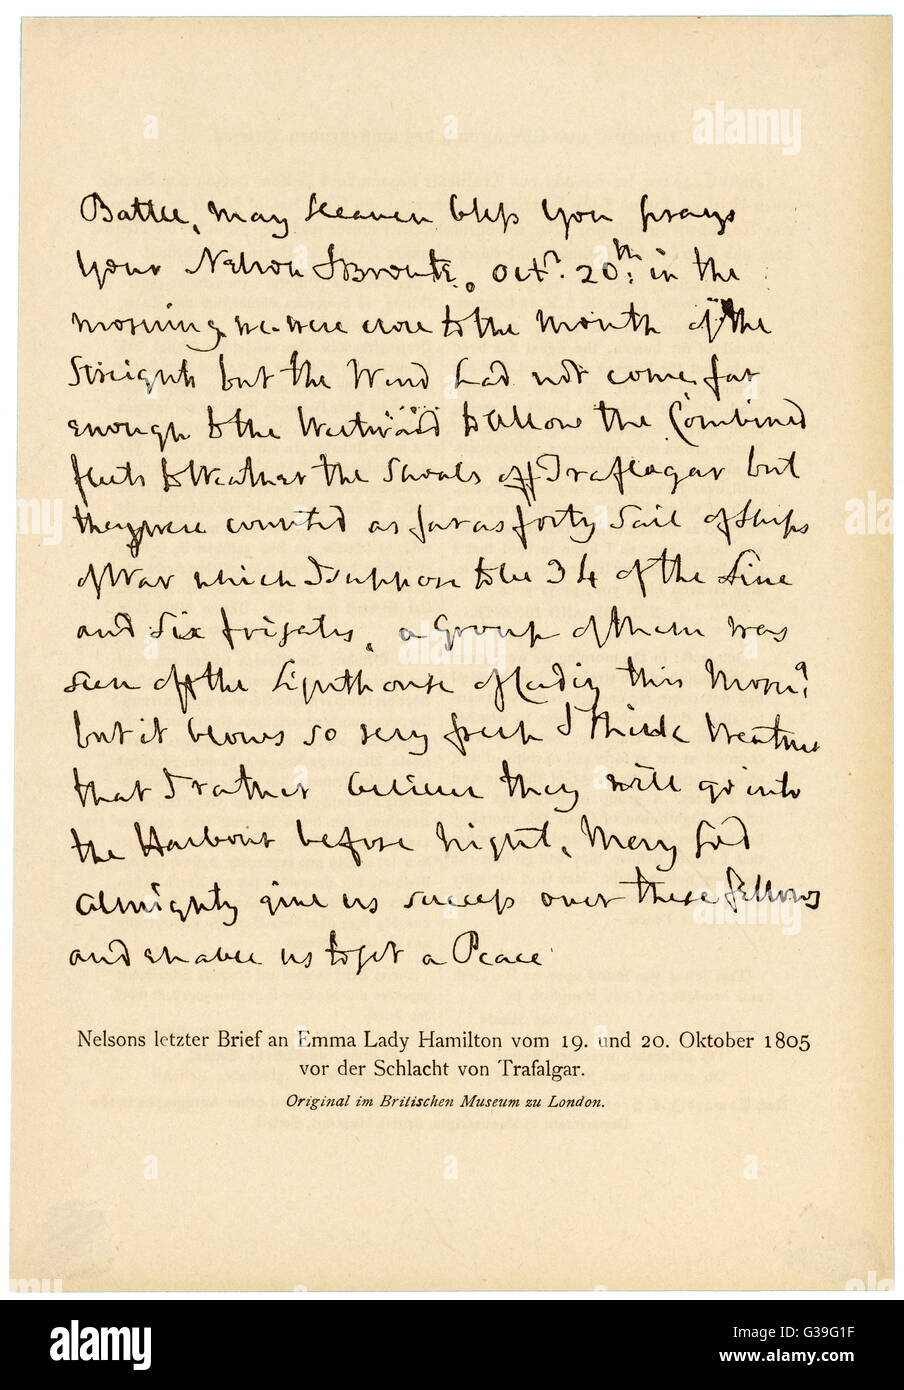 Battle, may Heaven bless You prays
Your Nelson & Bronte, Octr. 20th: in the
morning we were close to the Mouth of the
Streights but the Wind had not come far
enough to the Westward to allow the Combined
fleets to Weather the Shoals off Traflagar but
they were counted as far as forty Sail of Ships
of War which I suppose to be 34 of the Line
and Six frigates, a Group of them was
seen off the Lighthouse of Cadiz this Morng.
but it blows so very fresh I think Weather
that I rather believe they will go into
the Harbour before night, May God
Almighty give us success over these fellows
and enable us to get a Peace
Nelsons letzter Brief an Emma Lady Hamilton vom 19. und 20. Oktober 1805
vor der Schlacht von Trafalgar.
Original im Britischen Museum zu London.
alamy
Image ID: G39G1F
www.alamy.com